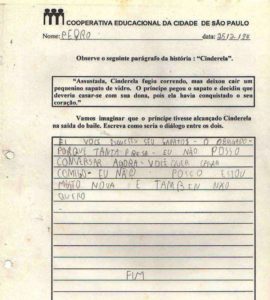 COOPERATIVA EDUCACIONAL DA CIDADE DE SÃO PAULO
Nome: PEDRO data: 25/2/98
Observe o seguinte parágrafo da história : "Cinderela".
"Assustada, Cinderela fugiu correndo, mas deixou cair um
pequenino sapato de vidro. O príncipe pegou o sapato e decidiu que
deveria casar-se com sua dona, pois ela havia conquistado o seu
coração."
Vamos imaginar que o príncipe tivesse alcançado Cinderela
na saída do baile. Escreva como seria o diálogo entre os dois.
EI VOCE SEU SAPATOS - O OBRIGADO -
PORQUE TANTA PRESA - EU NÃO POSSO
CONVERSAR AGORA - VOCE QUER CASA
COMIGO - EU NÃO POSSO ESTOU
MUITO NOVA E TAMBEN NÃO
QUERO
FIM